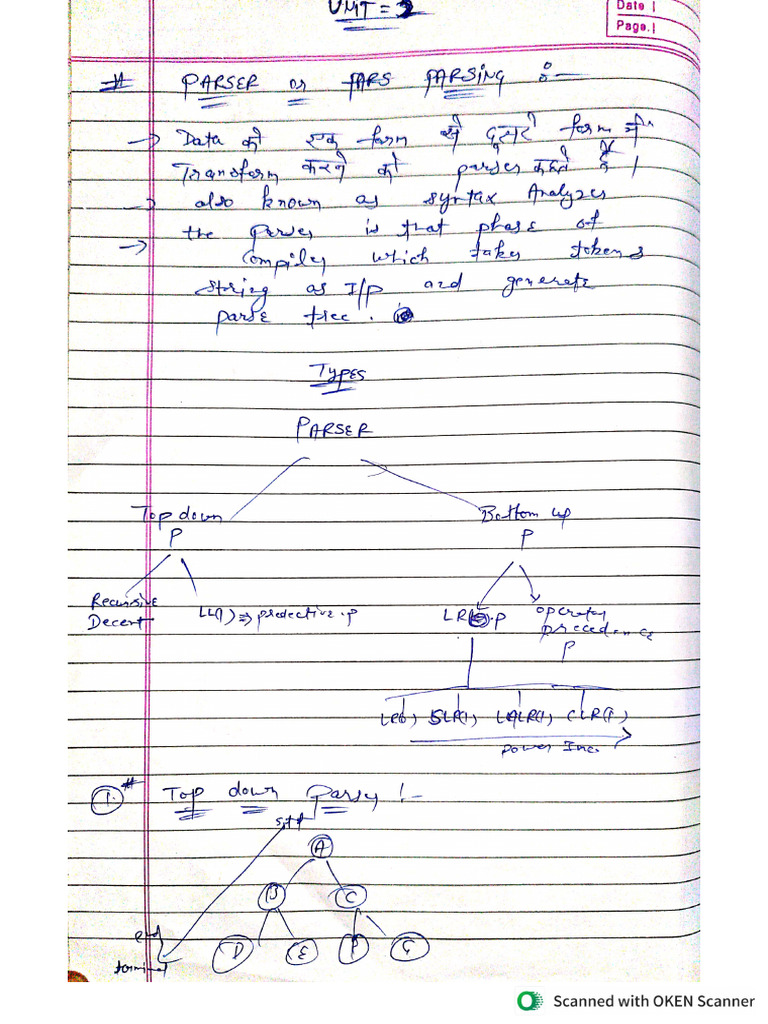 UNIT = 2
Date |
Page. |
# PARSER or PARS PARSING :-
→ Data को एक form से दूसरे form में
Transform करने को parser कहते हैं।
→ also known as syntax Analyzer
→ the parser is that phase of
compiler which takes tokens
string as I/p and generate
parse tree.
TYPES
PARSER
Top down
P
Bottom up
P
Recursive
Decent
LL(1) ⇒ predective.p
LR.P
operator
precedence
P
LR0, SLR(1, LALR(1, CLR(1,
power Inc.
1. # Top down Parser :-
A
B C
D E F G
end
terminal
Scanned with OKEN Scanner